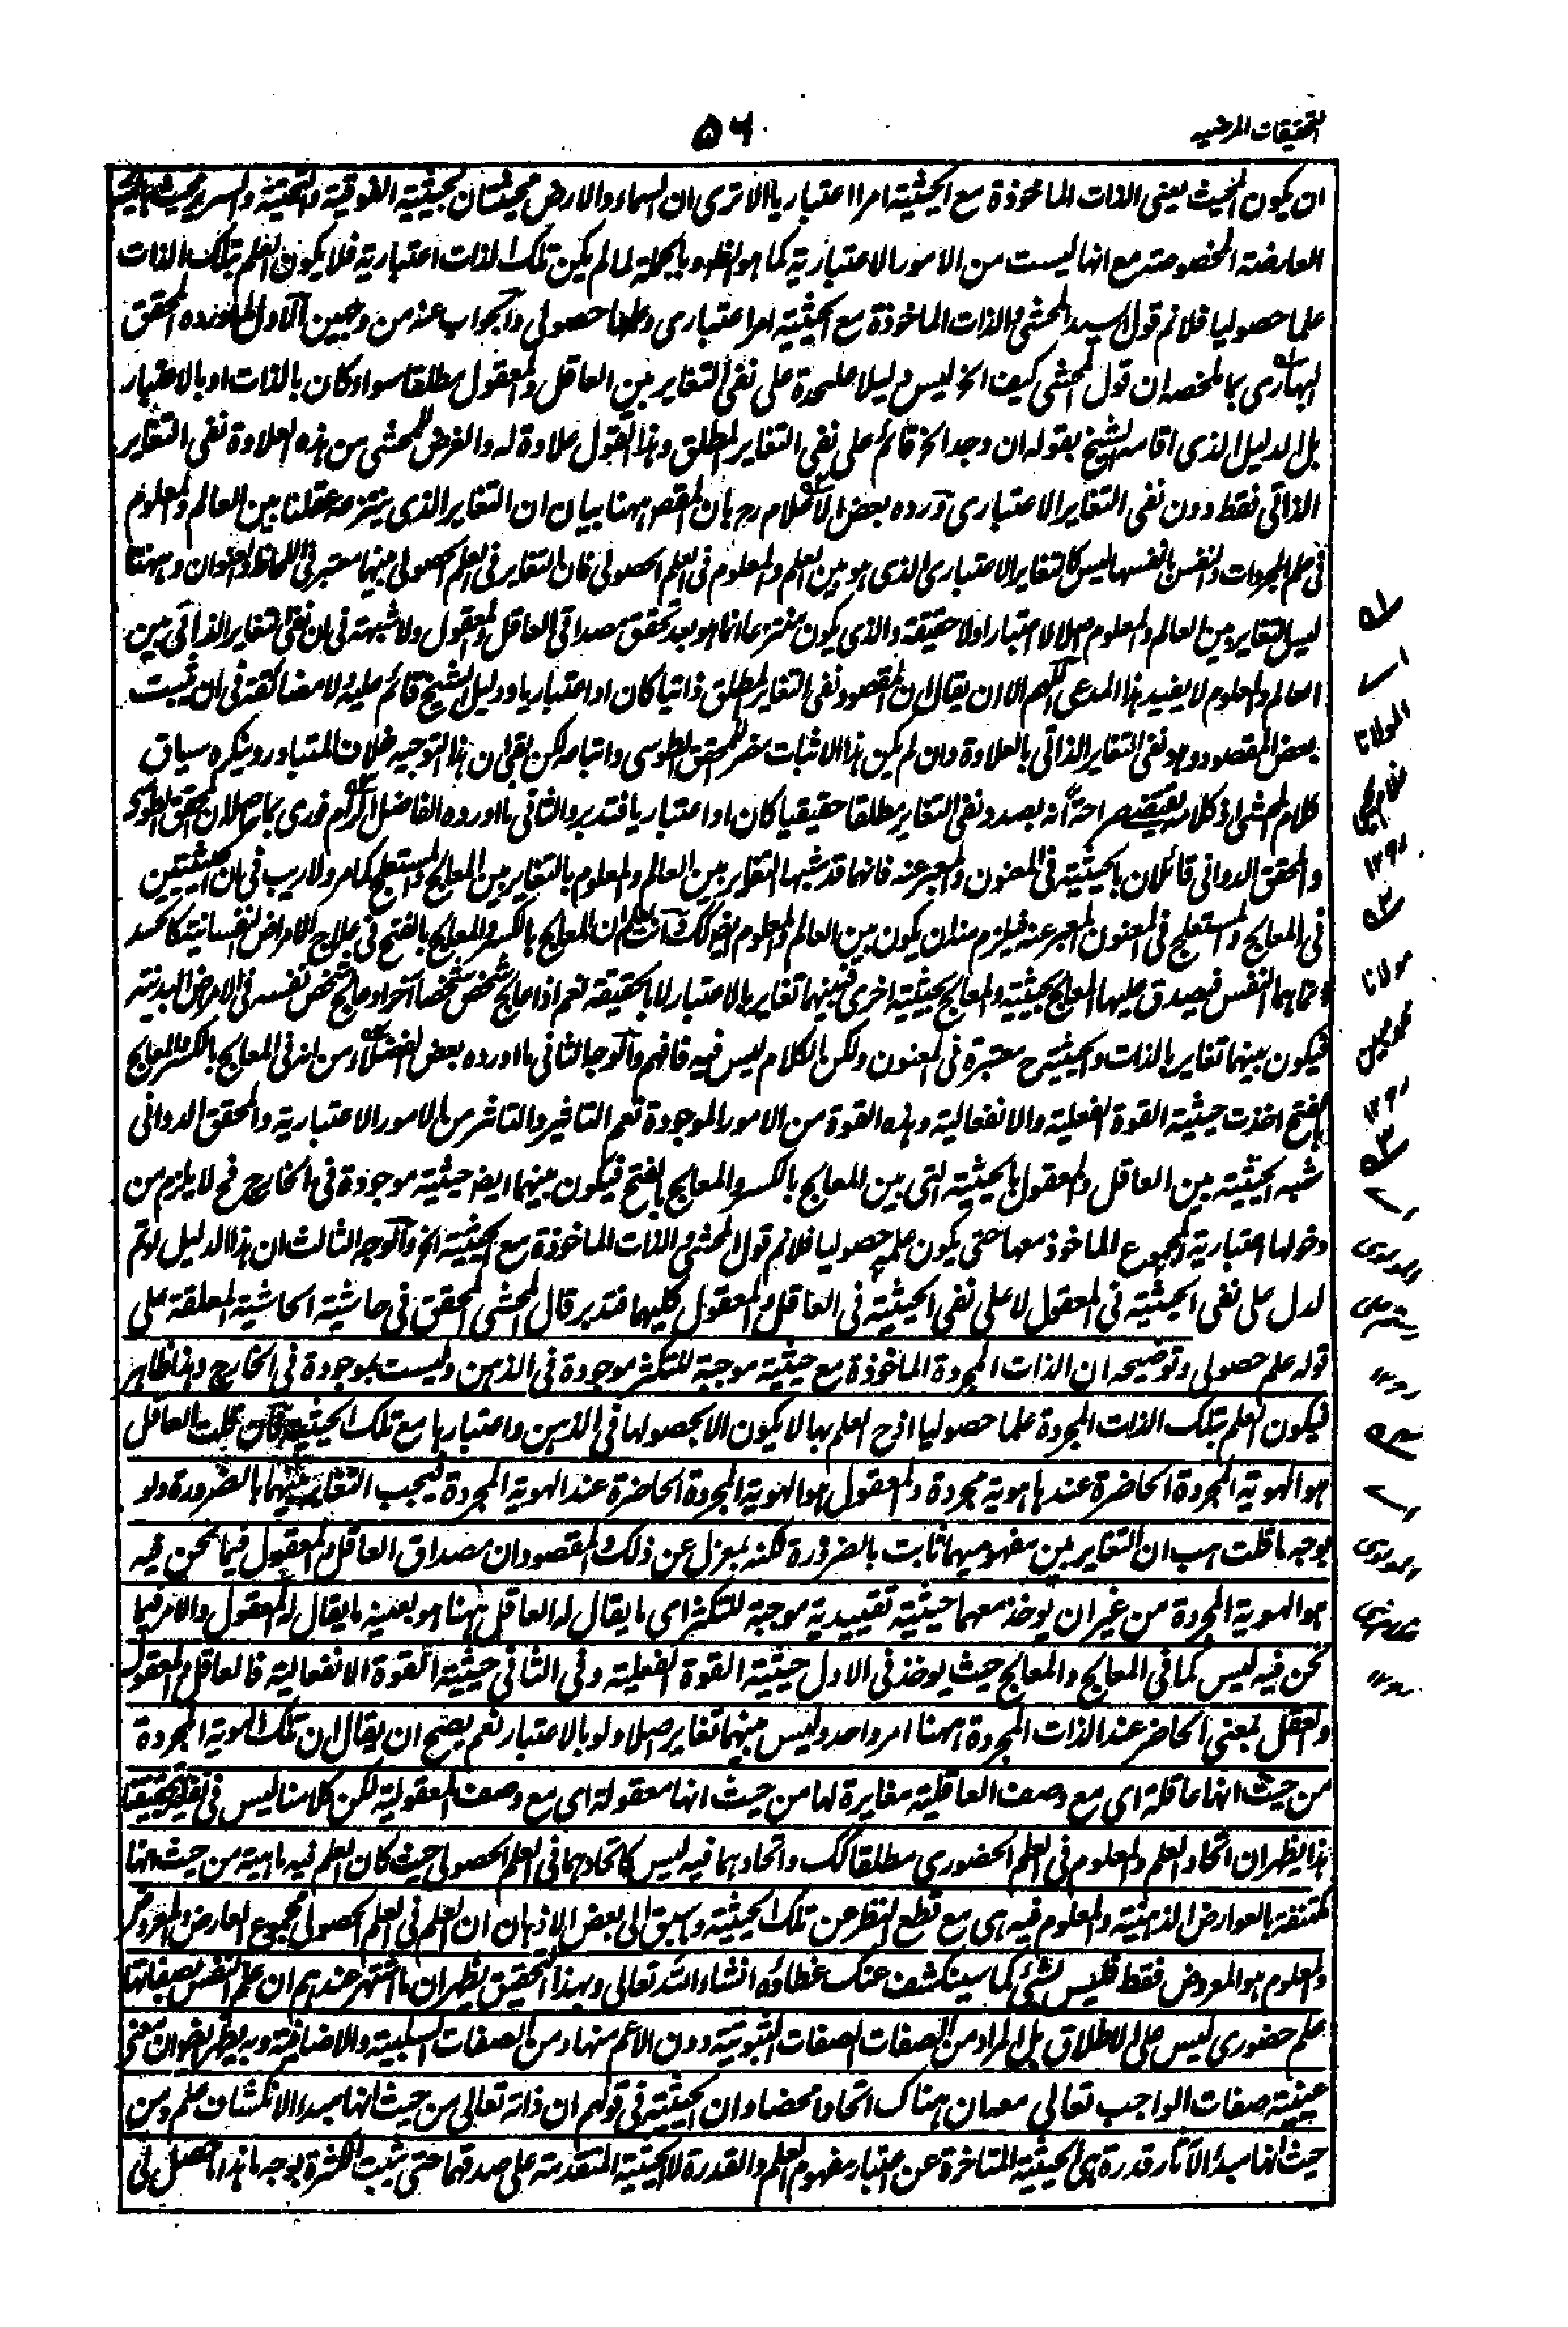 التحقيقات المرضيه
٥٦
ان يكون المحيث يعنى الذات الماخوذة مع الحيثية امرا اعتباريا الا ترى ان السماء والارض محيثتان بحيثية الفوقية والتحتية والسرير محيث
العارضة المخصوصة مع انها ليست من الامور الاعتبارية كما هو الظ وبالجملة لما لم يكن تلك الذات اعتبارية فلا يكون العلم بتلك الذات
علما حصوليا فلا تم قول السيد المحشى والذات الماخوذة مع الحيثية امر اعتبارى وعلمها حصولى والجواب عنه من وجهين الاول ما اورده المحقق
البهارى بما ملخصه ان قول المحشى كيف الخ ليس دليلا عليحدة على نفى التغاير بين العاقل والمعقول مطلقا سواء كان بالذات او بالاعتبار
بل الدليل الذى اقامه الشيخ بقوله ان وجد الخ قائم على نفى التغاير المطلق وهذا القول علاوة له والغرض للمحشى من هذه العلاوة نفى التغاير
الذاتى فقط دون نفى التغاير الاعتبارى ورده بعض الاعلام رح بان المقص ههنا بيان ان التغاير الذى ينتزعه عقلنا بين العالم والمعلوم
فى علم المجردات والنفس بانفسها ليس كالتغاير الاعتبارى الذى هو بين العلم والمعلوم فى العلم الحصولى فان التغاير فى العلم الحصولى بينهما معتبر فى اللحاظ والعنوان وههنا
ليس التغاير بين العالم والمعلوم اصلا لا اعتبارا ولا حقيقة والذى يكون منتزعا انما هو بعد تحقق مصداقى العاقل والمعقول ولا شبهة فى ان نفى التغاير الذاتى بين
العالم والمعلوم لا يفيد هذا المدعى اللهم الا ان يقال ان المقصود نفى التغاير المطلق ذاتيا كان او اعتباريا ودليل الشيخ قائم عليه ولا مضائقة فى ان يثبت
بعض المقصود وهو نفى التغاير الذاتى بالعلاوة وان لم يكن هذا الاثبات مضر للمحقق الطوسى واتباعه لكن بقى ان هذا التوجيه خلاف المتبادر وينكره سياق
كلام المحشى اذ كلامه يقتضى صراحة انه بصدد نفى التغاير مطلقا حقيقيا كان او اعتباريا فتدبر والثانى ما اورده الفاضل الرامفورى بما حاصله ان المحقق الطوسى
والمحقق الدوانى قائلان بالحيثية فى المعنون والمعبر عنه فانهما قد شبها التغاير بين العالم والمعلوم بالتغاير بين المعالج والمستعلج كما مر ولا ريب فى ان الحيثيتين
فى المعالج والمستعلج فى المعنون والمعبر عنه فيلزم منه ان يكون بين العالم والمعلوم ايضا كك وانت تعلم ان المعالج بالكسر والمعالج بالفتح فى علاج الامراض النفسانية كالحسد
هما النفس فيصدق عليها المعالج بحيثية والمعالج بحيثية اخرى فبينهما تغاير بالاعتبار لا بالحقيقة نعم اذا عالج شخص شخصا آخر او عالج شخص نفسه فى الامراض البدنية
فيكون بينهما تغاير بالذات والحيثية ح معتبرة فى المعنون ولكن الكلام ليس فيه فافهم والوجه الثانى ما اورده بعض الفضلاء من انه فى المعالج بالكسر والمعالج
بالفتح اخذت حيثية القوة الفعلية والانفعالية وهذه القوة من الامور الموجودة نعم التاثير والتاثر من الامور الاعتبارية والمحقق الدوانى
شبه الحيثية بين العاقل والمعقول بالحيثية التى بين المعالج بالكسر والمعالج بالفتح فيكون بينهما ايض حيثية موجودة فى الخارج فح لا يلزم من
دخولها اعتبارية المجموع الماخوذ معها حتى يكون علمه حصوليا فلا تم قول المحشى والذات الماخوذة مع الحيثية الخ والوجه الثالث ان هذا الدليل لو تم
لدل على نفى الحيثية فى المعقول لا على نفى الحيثية فى العاقل والمعقول كليهما فتدبر قال المحشى المحقق فى حاشية الحاشية المعلقة على
قوله علم حصولى وتوضيحه ان الذات المجردة الماخوذة مع حيثية موجبة للتكثر موجودة فى الذهن وليست بموجودة فى الخارج وهذا ظاهر
فيكون العلم بتلك الذات المجردة علما حصوليا اذ ح العلم بها لا يكون الا بحصولها فى الذهن واعتبارها مع تلك الحيثية فان قلت العاقل
هو الهوية المجردة الحاضرة عندها هوية مجردة والمعقول هو الهوية المجردة الحاضرة عند الهوية المجردة فيجب التغاير بينهما بالضرورة ولو
بوجه ما قلت هب ان التغاير بين مفهوميهما ثابت بالضرورة لكنه بمعزل عن ذلك والمقصود ان مصداق العاقل والمعقول فيما نحن فيه
هو الهوية المجردة من غير ان يوخذ معها حيثية تقييدية موجبة للتكثر اى ما يقال له العاقل ههنا هو بعينه ما يقال له المعقول والامر فيما
نحن فيه ليس كما فى المعالج والمعالج حيث يوخذ فى الاول حيثية القوة الفعلية وفى الثانى حيثية القوة الانفعالية فالعاقل والمعقول
والعقل بمعنى الحاضر عند الذات المجردة ههنا امر واحد وليس بينهما تغاير اصلا ولو بالاعتبار نعم يصح ان يقال ان تلك الهوية المجردة
من حيث انها عاقلة اى مع وصف العاقلية مغايرة لها من حيث انها معقولة اى مع وصف المعقولية لكن كلامنا ليس فى
هذا يظهر ان اتحاد العلم والمعلوم فى العلم الحضورى مطلقا كك واتحادهما فيه ليس كاتحادهما فى العلم الحصولى حيث كان العلم فيه ماهية من حيث انها
مكتنفة بالعوارض الذهنية والمعلوم فيه هى مع قطع النظر عن تلك الحيثية وما سبق الى بعض الاذهان ان العلم فى العلم الحصولى مجموع العارض والمعروض
والمعلوم هو المعروض فقط فليس بشئ كما سينكشف عنك غطاؤه انشاء الله تعالى وبهذا التحقيق يظهر ان ما اشتهر عندهم ان علم النفس بصفاتها
علم حضورى ليس على الاطلاق بل المراد من الصفات الصفات الثبوتية دون الاعم منها ومن الصفات السلبية والاضافية وبه يظهر ايضا ان معنى
عينية صفات الواجب تعالى معه ان هناك اتحادا محضا وان الحيثية فى قولهم ان ذاته تعالى من حيث انها مبدء الانكشاف علم ومن
حيث انها مبدأ الآثار قدرة هى الحيثية المتاخرة عن اعتبار مفهوم العلم والقدرة لا الحيثية المتقدمة على صدقهما حتى يثبت الكثرة بوجه ما هذا ما حصل لى